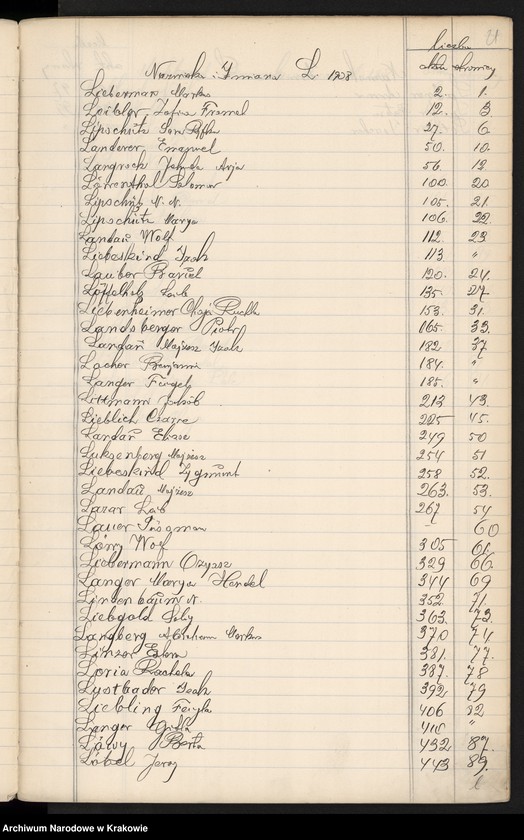 liczba 81
Nazwisko i Imiona L. 1928 aktu stronicy
Lieberman Markus 2. 1.
Leibler Josua Fromel 12. 3.
Lipschütz 27. 6
Landerer Emanuel 50. 10.
Langrock Jehuda Arja 56. 12.
Löwenthal Salomon 100. 20
Lipschütz N. N. 105. 21.
Lipschütz Marya 106. 22.
Landau Wolf 112. 23
Liebeskind Izak 113 "
Lauber 120. 24.
Löffelholz Leib 135. 27.
Liebenheimer Chaja Ruchla 153. 31.
Landsberger Piotr 165 33.
Landau Mojżesz Izak 182 37
Lacher Benjamin 184. "
Langer Feigel 185. "
Littmann Jakób 213 43.
Lieblich 225 45.
Landau 249 50
Luksenberg Mojżesz 254 51
Liebeskind Zygmunt 258 52.
Landau Mojżesz 263. 53.
Lazar Leib 267 54
Lauer 60
Löwy Wolf 305 61.
Liebermann 329 66
Langer Marya Hendel 344 69
Lindenbaum N. 352. 71.
Liebgold 363. 73.
Langberg Abraham Markus 370 74
Linzer Estera 381. 77.
Loria Rachela 387. 78
Lustbader Izak 392. 79
Liebling Feigla 406 82
Langer Gitla 410 "
Löwy Berta 432 87.
Löbel Jerzy 443 89.
Archiwum Narodowe w Krakowie